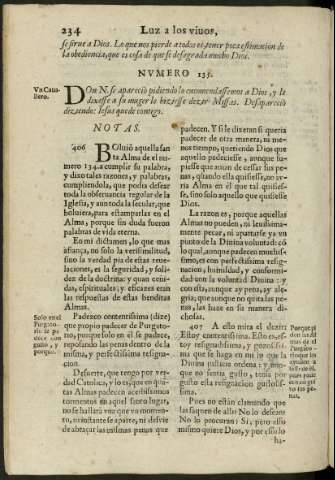 234 Luz a los viuos,
se sirue a Dios. Lo que nos pierde a todos es, tener poca estimacion de
la obediencia, que es cosa de que se desagrada mucho Dios.
NVMERO 135.
Vn Caua-
llero.
DON N. se apareciò pidiendo lo encomendassemos a Dios, y le
dixesse a su muger le hiziesse dezir Missas. Desapareciò
diziendo: Iesus quede contigo.
NOTAS.
406 Boluiò aquella san
ta Alma de el nu
mero 134. a cumplir su palabra,
y dixo tales razones, y palabras
cumpliendola, que podia desear
toda la obseruancia regular de la
Iglesia, y aun toda la secular, que
boluiera, para estamparlas en el
Alma, porque sin duda fueron
palabras de vida eterna.
En mi dictamen, lo que mas
afiança, no solo la verisimilitud,
sino la verdad pia de estas reue-
laciones, es la seguridad, y soli-
dez de la doctrina: y quan cuer-
das, espirituales; y eficazes eran
las respuestas de estas benditas
Almas.
Solo en el
Purgato-
rio se pa
dece con
gusto, y
porque.
Padezco contentissima (dize)
que es proprio padecer de Purgato-
rio, porque solo en èl se padece,
repolando las penas dentro de la
misma, y perfectissima resigna-
cion.
Desuerte, que tengo por ver-
dad Catolica, y lo es, que en quã-
tas Almas padecen acerbissimos
tormentos en aquel santo lugar,
no se hallarà vna que vn momen-
to, vn instante se aparte, ni desvie
de abraçar las mismas penas que
padecen. Y si le dixeran si queria
padecer de otra manera, ni me-
nos tiempo, queriendo Dios que
aquello padeciesse, aunque fu-
piesse que auian de cessar sus pe-
nas, quando ella quisiesse, no vu-
viera Alma en èl que tal quisies-
se, sino solo aquello que quisiesse
Dios.
La razon es, porque aquellas
Almas no pueden, ni leuissima-
mente pecar, ni apartarse ya vn
punto de la Diuina voluntad: co
lo qual, aunque penan muchissi-
mo; es con perfectissima resig-
nacion, humildad, y conformi-
dad con la voluntad Diuina: y
con esto, aunque ay pena, ay ale-
gria; que aunque no quita las pe-
nas, las haze en su manera di-
chosas.
407 A esto mira el dezir:
Estoy contentissima. Esto es, es-
toy resignadissima, y gozosissi-
ma que se haga en mi lo que la
Diuina justicia ordena: y me-
nos me quita esta pena, gusto
gusto esta resignacion gustosis-
sima.
Pues no están clamando que
las saquen de alli? No lo desean?
No lo procuran? Si, pero esso
mismo quiere Dios, y por esso lo
ha-